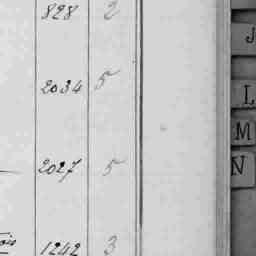 828 2
J
2034 5
L
M
2027 5
N
ois
1242 3